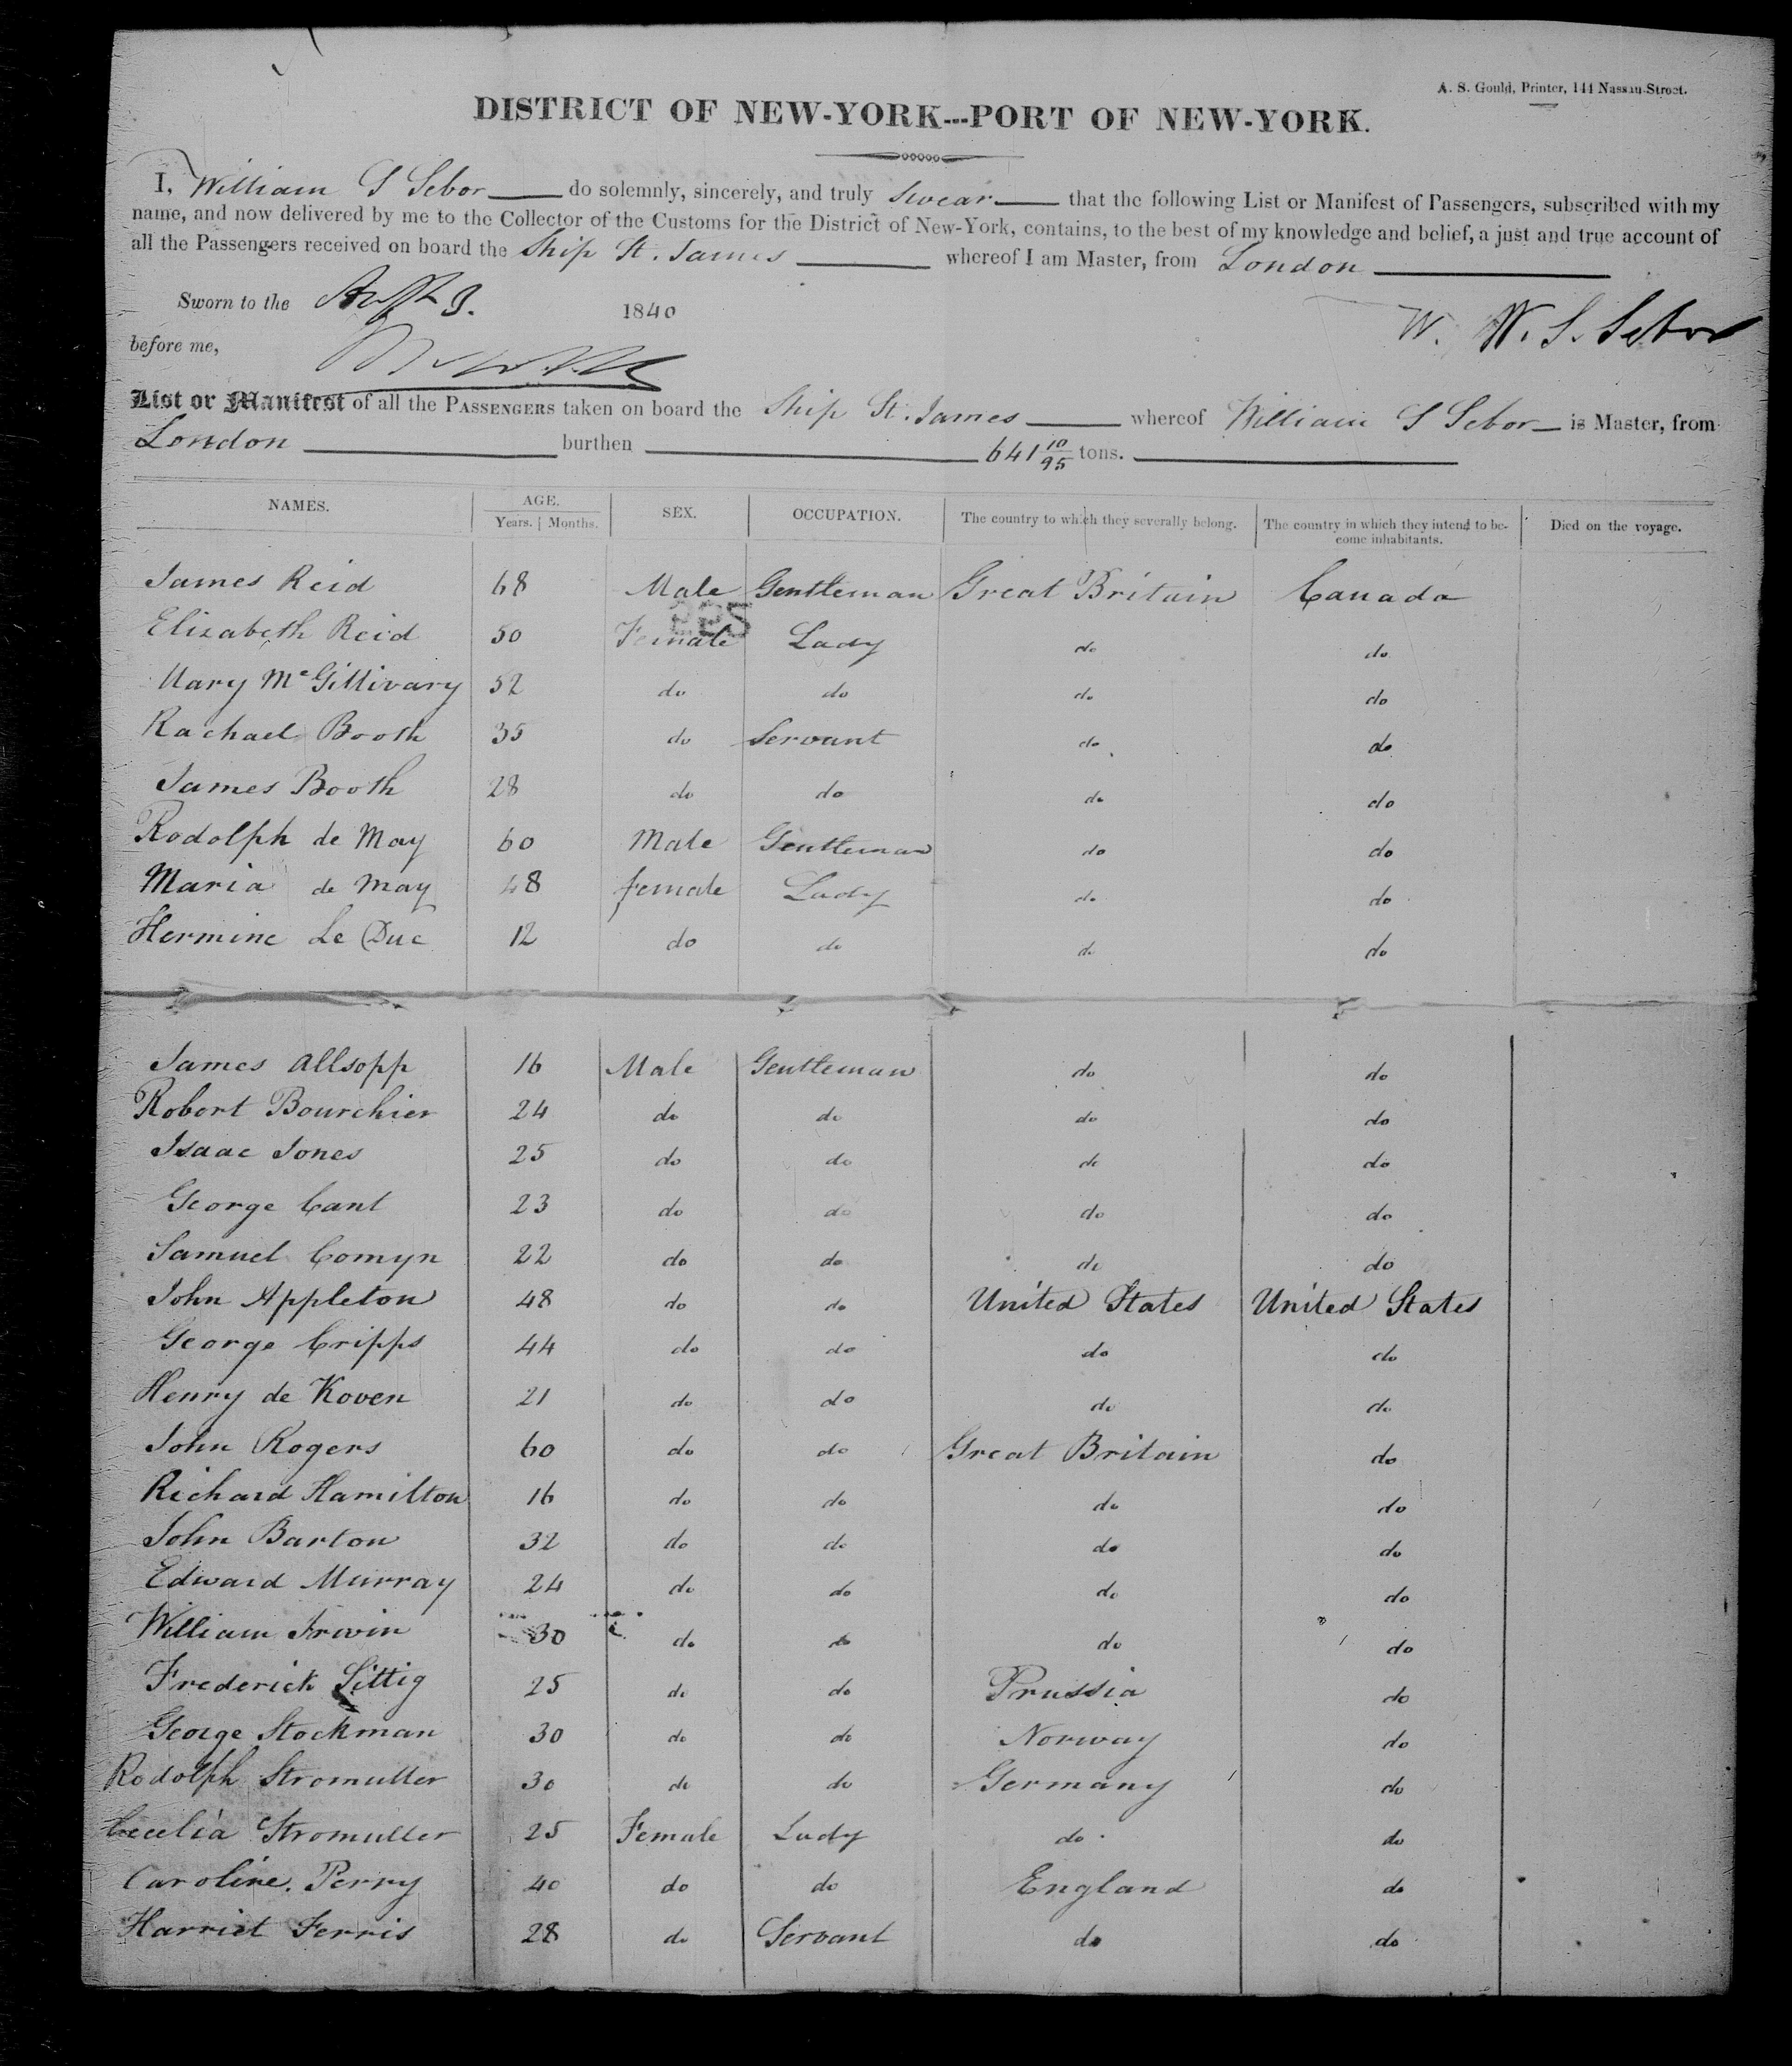 A. S. Gould, Printer, 144 Nassau-Street.
DISTRICT OF NEW-YORK---PORT OF NEW-YORK.
I, William S Sebor do solemnly, sincerely, and truly swear that the following List or Manifest of Passengers, subscribed with my
name, and now delivered by me to the Collector of the Customs for the District of New-York, contains, to the best of my knowledge and belief, a just and true account of
all the Passengers received on board the Ship St. James whereof I am Master, from London
Sworn to the 3. 1840
W. W. S. Sebor
before me,
List or Manifest of all the PASSENGERS taken on board the Ship St. James whereof William S Sebor is Master, from
London burthen 641 10/95 tons.
NAMES. AGE. Years. | Months. SEX. OCCUPATION. The country to which they severally belong. The country in which they intend to become inhabitants. Died on the voyage.
James Reid 68 Male Gentleman Great Britain Canada
Elizabeth Reid 50 Female Lady do do
Mary McGillivary 52 do do do do
Rachael Booth 35 do Servant do do
James Booth 28 do do do do
Rodolph de May 60 Male Gentleman do do
Maria de May 48 female Lady do do
Hermine Le Duc 12 do do do do
James Allsopp 16 Male Gentleman do do
Robert Bourchier 24 do do do do
Isaac Jones 25 do do do do
George Cant 23 do do do do
Samuel Comyn 22 do do do do
John Appleton 48 do do United States United States
George Cripps 44 do do do do
Henry de Koven 21 do do do do
John Rogers 60 do do Great Britain do
Richard Hamilton 16 do do do do
John Barton 32 do do do do
Edward Murray 24 do do do do
William Irwin 30 do do do do
Frederick Sittig 25 do do Prussia do
George Stockman 30 do do Norway do
Rodolph Stromuller 30 do do Germany do
Cecelia Stromuller 25 Female Lady do do
Caroline Perry 40 do do England do
Harriet Ferris 28 do Servant do do